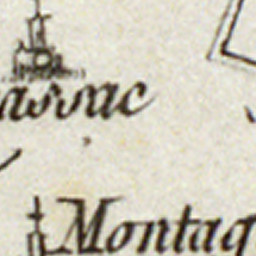 assac
Montag